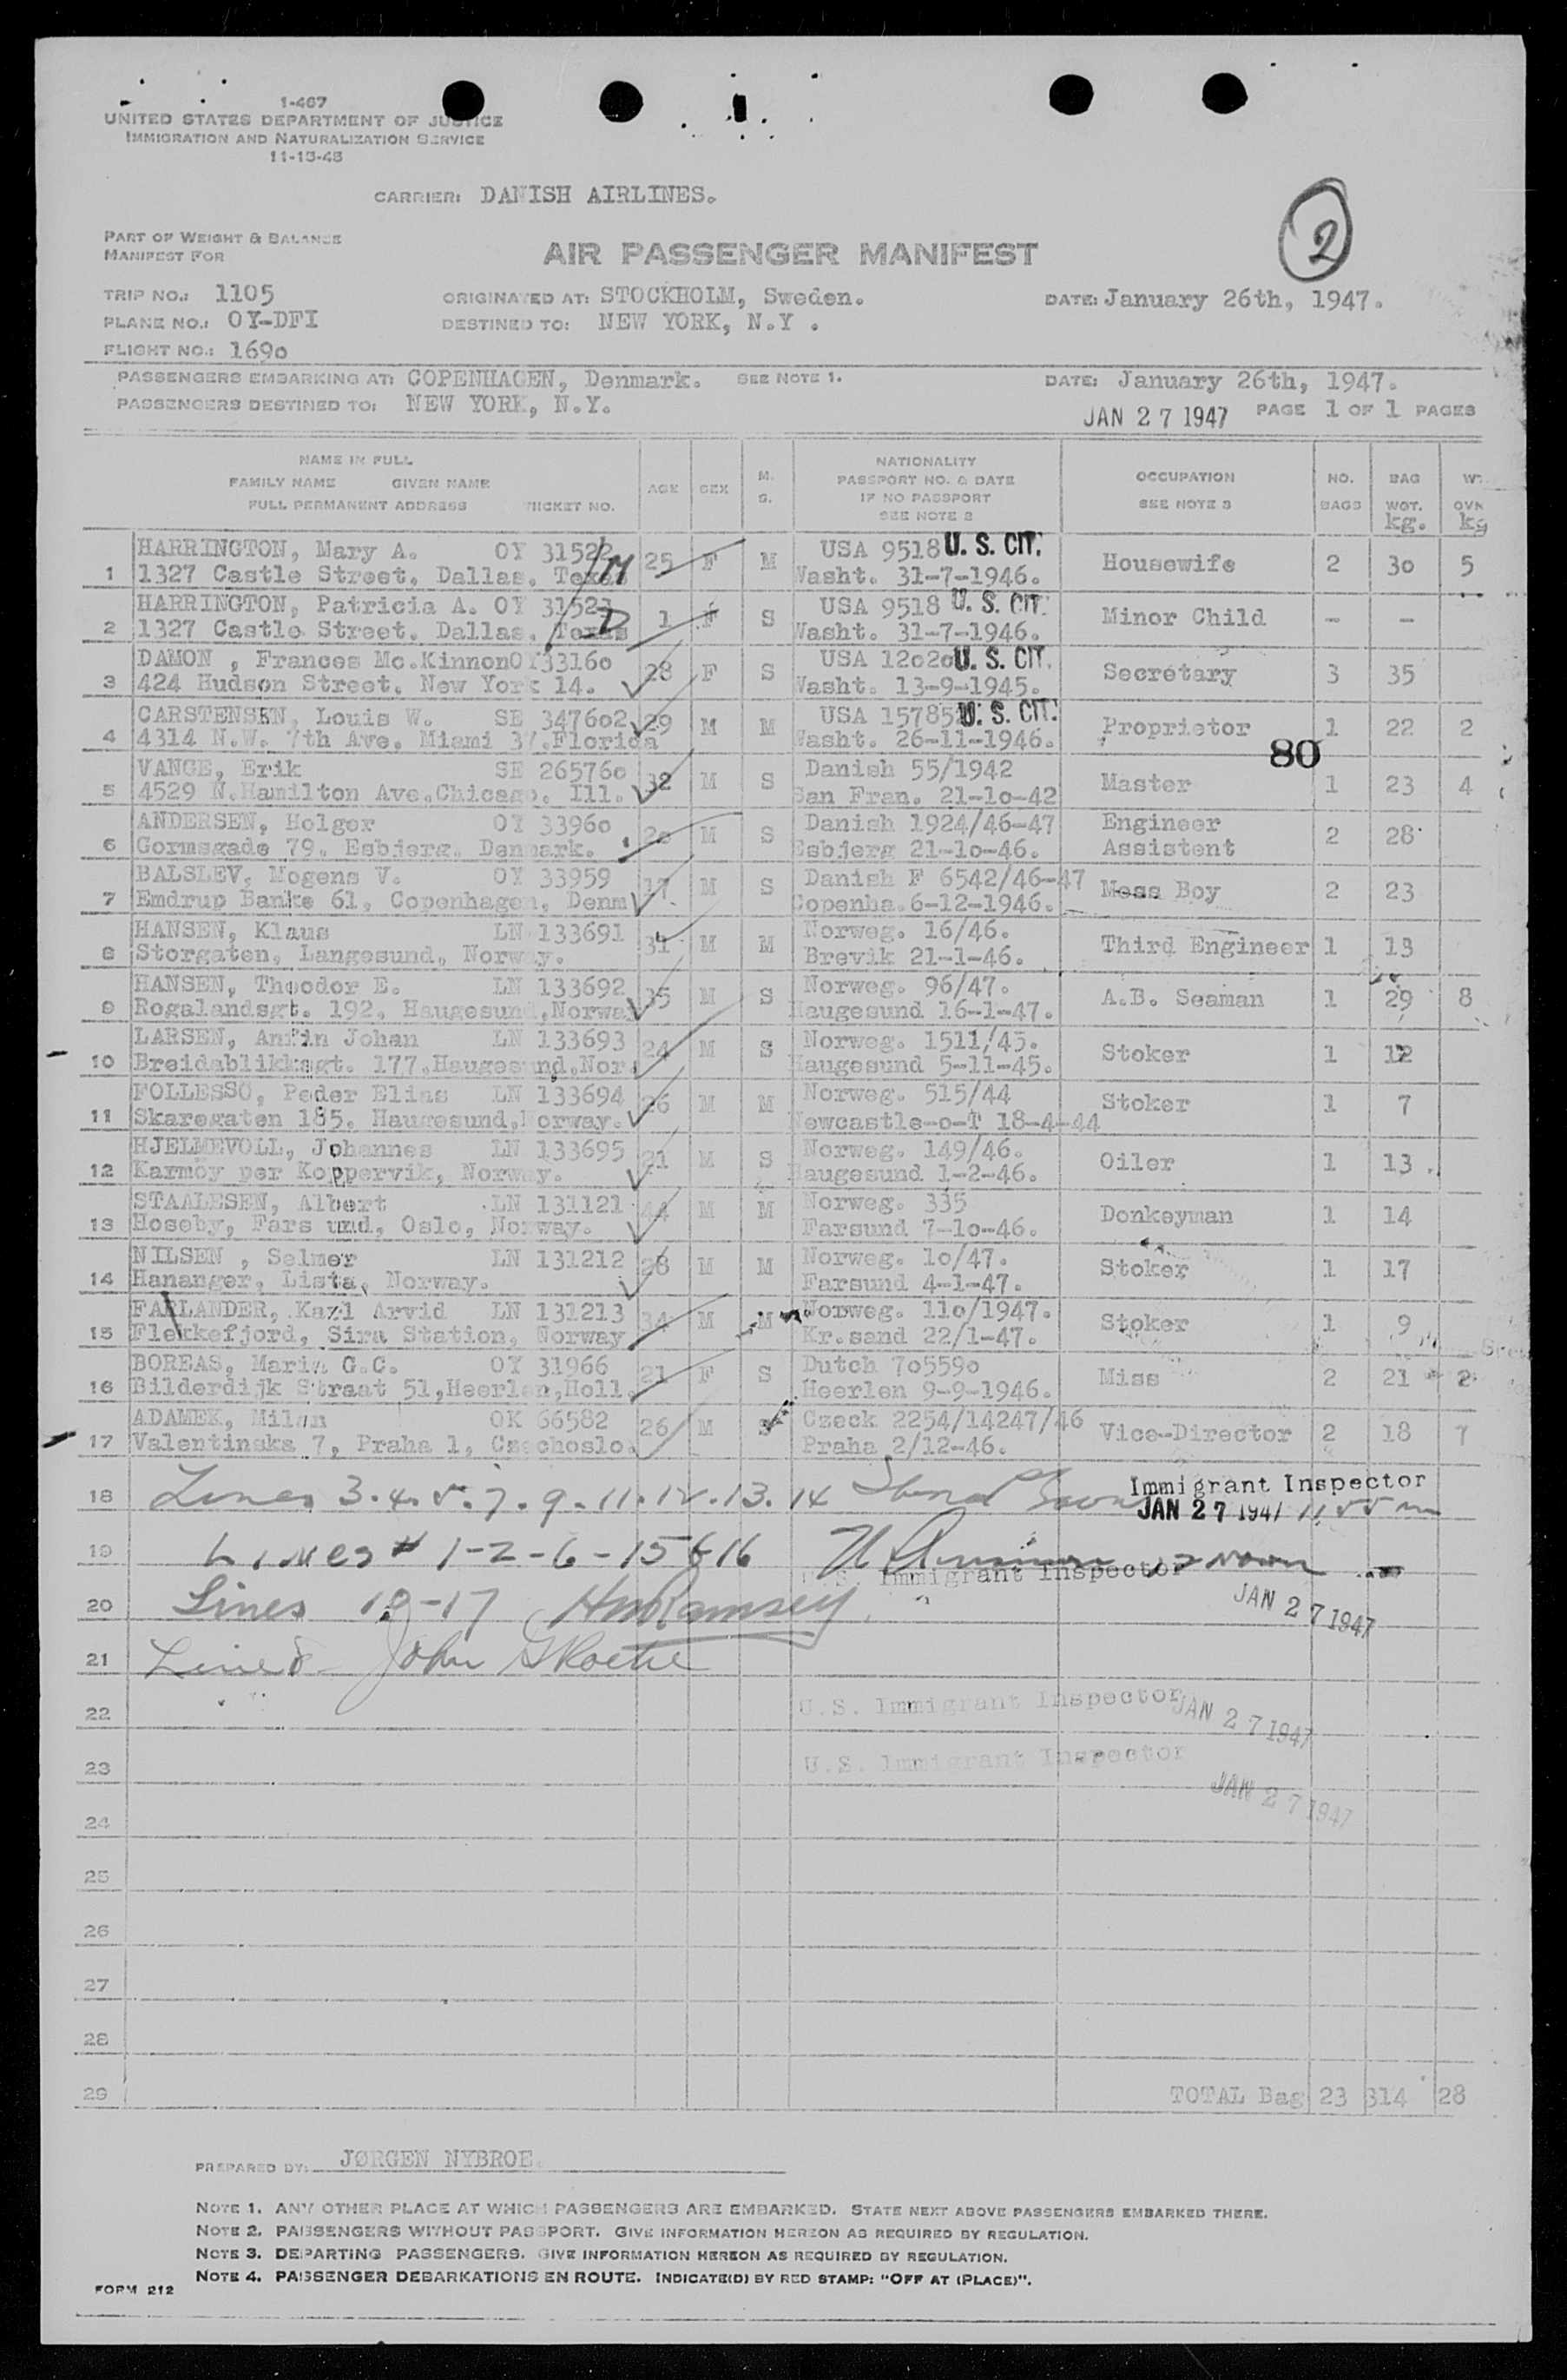 1-467
UNITED STATES DEPARTMENT OF JUSTICE
IMMIGRATION AND NATURALIZATION SERVICE
11-15-45
CARRIER: DANISH AIRLINES.
PART OF WEIGHT & BALANCE
MANIFEST FOR
AIR PASSENGER MANIFEST
2
TRIP NO.: 1105 ORIGINATED AT: STOCKHOLM, Sweden. DATE: January 26th, 1947.
PLANE NO.: OY-DFI DESTINED TO: NEW YORK, N.Y .
FLIGHT NO.: 169o
PASSENGERS EMBARKING AT: COPENHAGEN, Denmark. SEE NOTE 1. DATE: January 26th, 1947.
PASSENGERS DESTINED TO: NEW YORK, N.Y. JAN 27 1947 PAGE 1 OF 1 PAGES
NAME IN FULL
FAMILY NAME GIVEN NAME
FULL PERMANENT ADDRESS TICKET NO. AGE SEX M. S. NATIONALITY PASSPORT NO. & DATE IF NO PASSPORT SEE NOTE 2 OCCUPATION SEE NOTE 3 NO. BAGS BAG WGT. kg. WT. OVN kg
HARRINGTON, Mary A. OY 31522 25 F M USA 9518 U. S. CIT. Housewife 2 3o 5
1 1327 Castle Street, Dallas, Texas M Washt. 31-7-1946.
HARRINGTON, Patricia A. OY 31523 1 F S USA 9518 U. S. CIT. Minor Child - -
2 1327 Castle Street, Dallas, Texas D Washt. 31-7-1946.
DAMON , Frances Mc.KinnonOY3316o 28 F S USA 12o2o U. S. CIT. Secretary 3 35
3 424 Hudson Street, New York 14. Washt. 13-9-1945.
CARSTENSEN, Louis W. SE 3476o2 29 M M USA 15785 U. S. CIT. Proprietor 1 22 2
4 4314 N.W. 7th Ave, Miami 37.Florida Washt. 26-11-1946.
80
VANGE, Erik SE 26576o 32 M S Danish 55/1942 Master 1 23 4
5 4529 N.Hamilton Ave.Chicago, Ill. San Fran. 21-1o-42
ANDERSEN, Holger OY 3396o 2o M S Danish 1924/46-47 Engineer 2 28
6 Gormsgade 79, Esbjerg, Denmark. Esbjerg 21-1o-46. Assistent
BALSLEV, Mogens V. OY 33959 17 M S Danish F 6542/46-47 Mess Boy 2 23
7 Emdrup Banke 61, Copenhagen, Denm Copenha.6-12-1946.
HANSEN, Klaus LN 133691 31 M M Norweg. 16/46. Third Engineer 1 13
8 Storgaten, Langesund, Norway. Brevik 21-1-46.
HANSEN, Theodor E. LN 133692 35 M S Norweg. 96/47. A.B. Seaman 1 29 8
9 Rogalandsgt. 192, Haugesund,Norway Haugesund 16-1-47.
LARSEN, Anfin Johan LN 133693 24 M S Norweg. 1511/45. Stoker 1 12
10 Breidablikksgt. 177,Haugesund,Nor. Haugesund 5-11-45.
FOLLESSO, Peder Elias LN 133694 26 M M Norweg. 515/44 Stoker 1 7
11 Skaregaten 185, Haugesund,Norway. Newcastle-o-T 18-4-44
HJELMEVOLL, Johannes LN 133695 21 M S Norweg. 149/46. Oiler 1 13
12 Karmöy per Koppervik, Norway. Haugesund 1-2-46.
STAALESEN, Albert LN 131121 44 M M Norweg. 335 Donkeyman 1 14
13 Hoseby, Fars und, Oslo, Norway. Farsund 7-1o-46.
NILSEN , Selmer LN 131212 28 M M Norweg. 1o/47. Stoker 1 17
14 Hananger, Lista, Norway. Farsund 4-1-47.
FARLANDER, Karl Arvid LN 131213 34 M M Norweg. 11o/1947. Stoker 1 9
15 Flekkefjord, Sira Station, Norway Kr.sand 22/1-47.
BOREAS, Maria G.C. OY 31966 21 F S Dutch 7o559o Miss 2 21 2
16 Bilderdijk Straat 51,Heerlen,Holl. Heerlen 9-9-1946.
ADAMEK, Milan OK 66582 26 M S Czeck 2254/14247/46 Vice-Director 2 18 7
17 Valentinska 7, Praha 1, Czechoslo. Praha 2/12-46.
18 Lines 3.4.5.7.9.11.12.13.14 Immigrant Inspector
JAN 27 1947 11 55 am
19 Lines # 1-2-6-15 & 16 noon
U.S. Immigrant Inspector
20 Lines 10-17 HW Ramsey JAN 27 1947
21 Line 8 John
22 U.S. Immigrant Inspector JAN 27 1947
23 U.S. Immigrant Inspector
JAN 27 1947
24
25
26
27
28
29 TOTAL Bag 23 314 28
PREPARED BY: JØRGEN NYBROE.
NOTE 1. ANY OTHER PLACE AT WHICH PASSENGERS ARE EMBARKED. STATE NEXT ABOVE PASSENGERS EMBARKED THERE.
NOTE 2. PASSENGERS WITHOUT PASSPORT. GIVE INFORMATION HEREON AS REQUIRED BY REGULATION.
NOTE 3. DEPARTING PASSENGERS. GIVE INFORMATION HEREON AS REQUIRED BY REGULATION.
NOTE 4. PASSENGER DEBARKATIONS EN ROUTE. INDICATE(D) BY RED STAMP: "OFF AT (PLACE)".
FORM 212